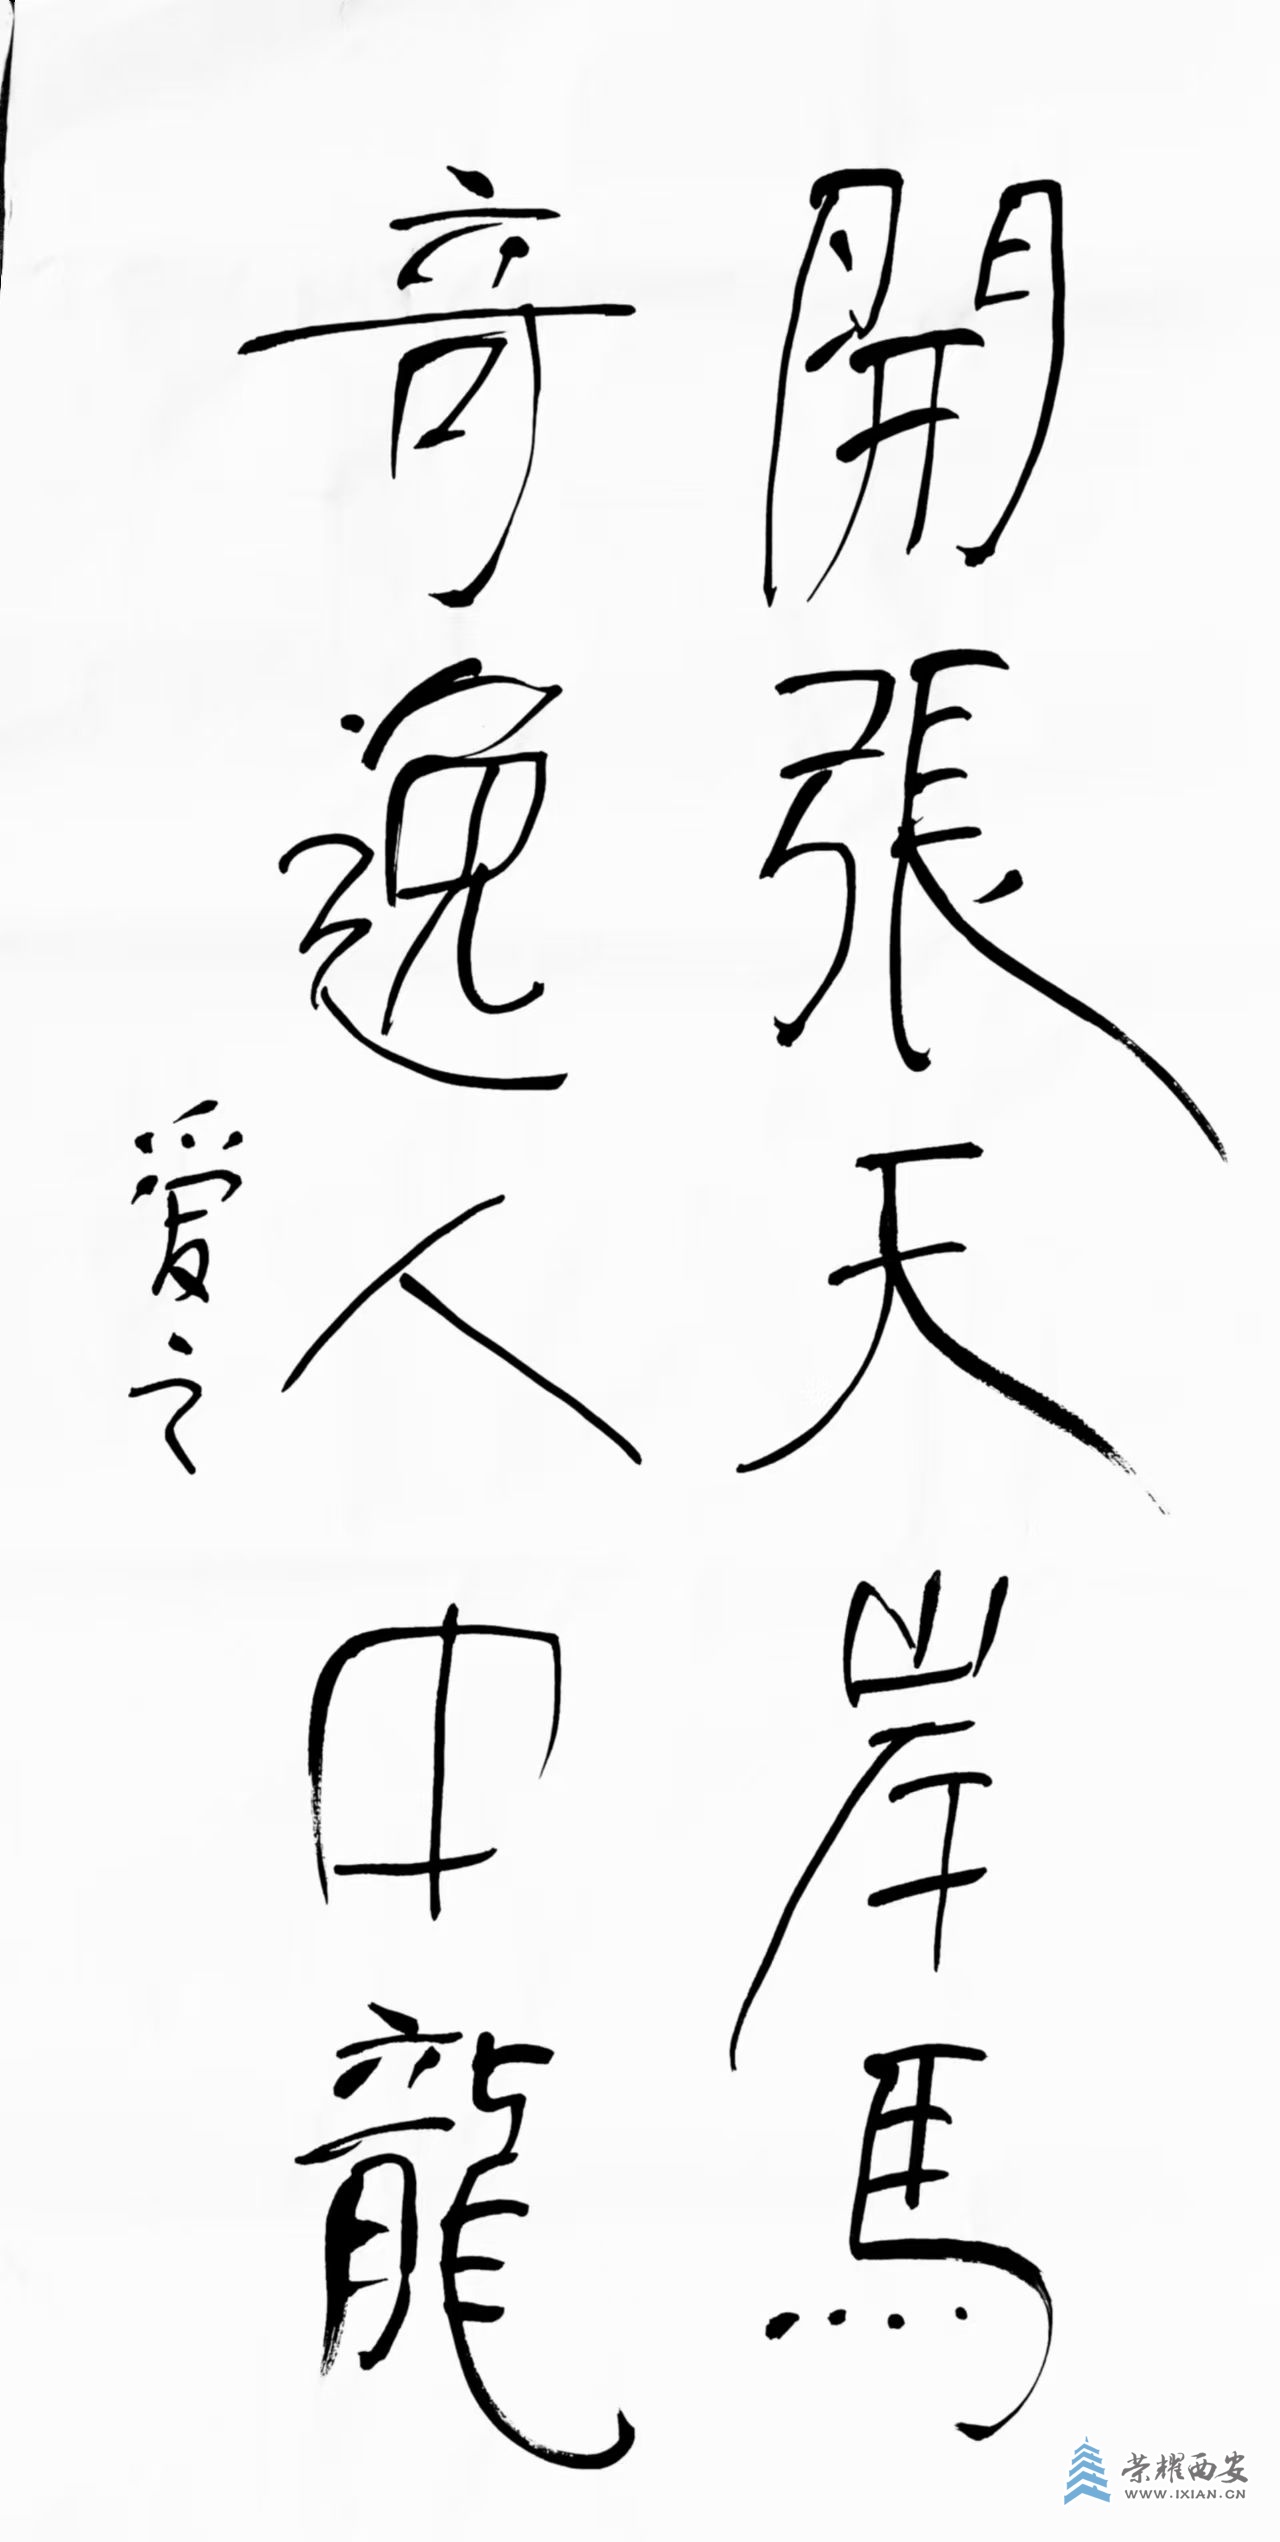 開張天岸馬
奇逸人中龍
爱之
荣耀西安
WWW.IXIAN.CN